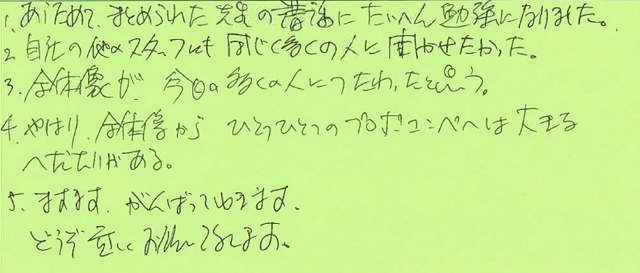 1. あらためて、まとめられた先生の書籍にたいへん勉強になりました。
2. 自社の他のスタッフにも同じく多くの人に聞かせたかった。
3. 全体像が、今日の多くの人につたわったと思う。
4. やはり、全体像から ひとつひとつのプロポ コンペへは大きな
へだたりがある。
5. ますます、がんばっていきます。
どうぞ宜しくお願いします。